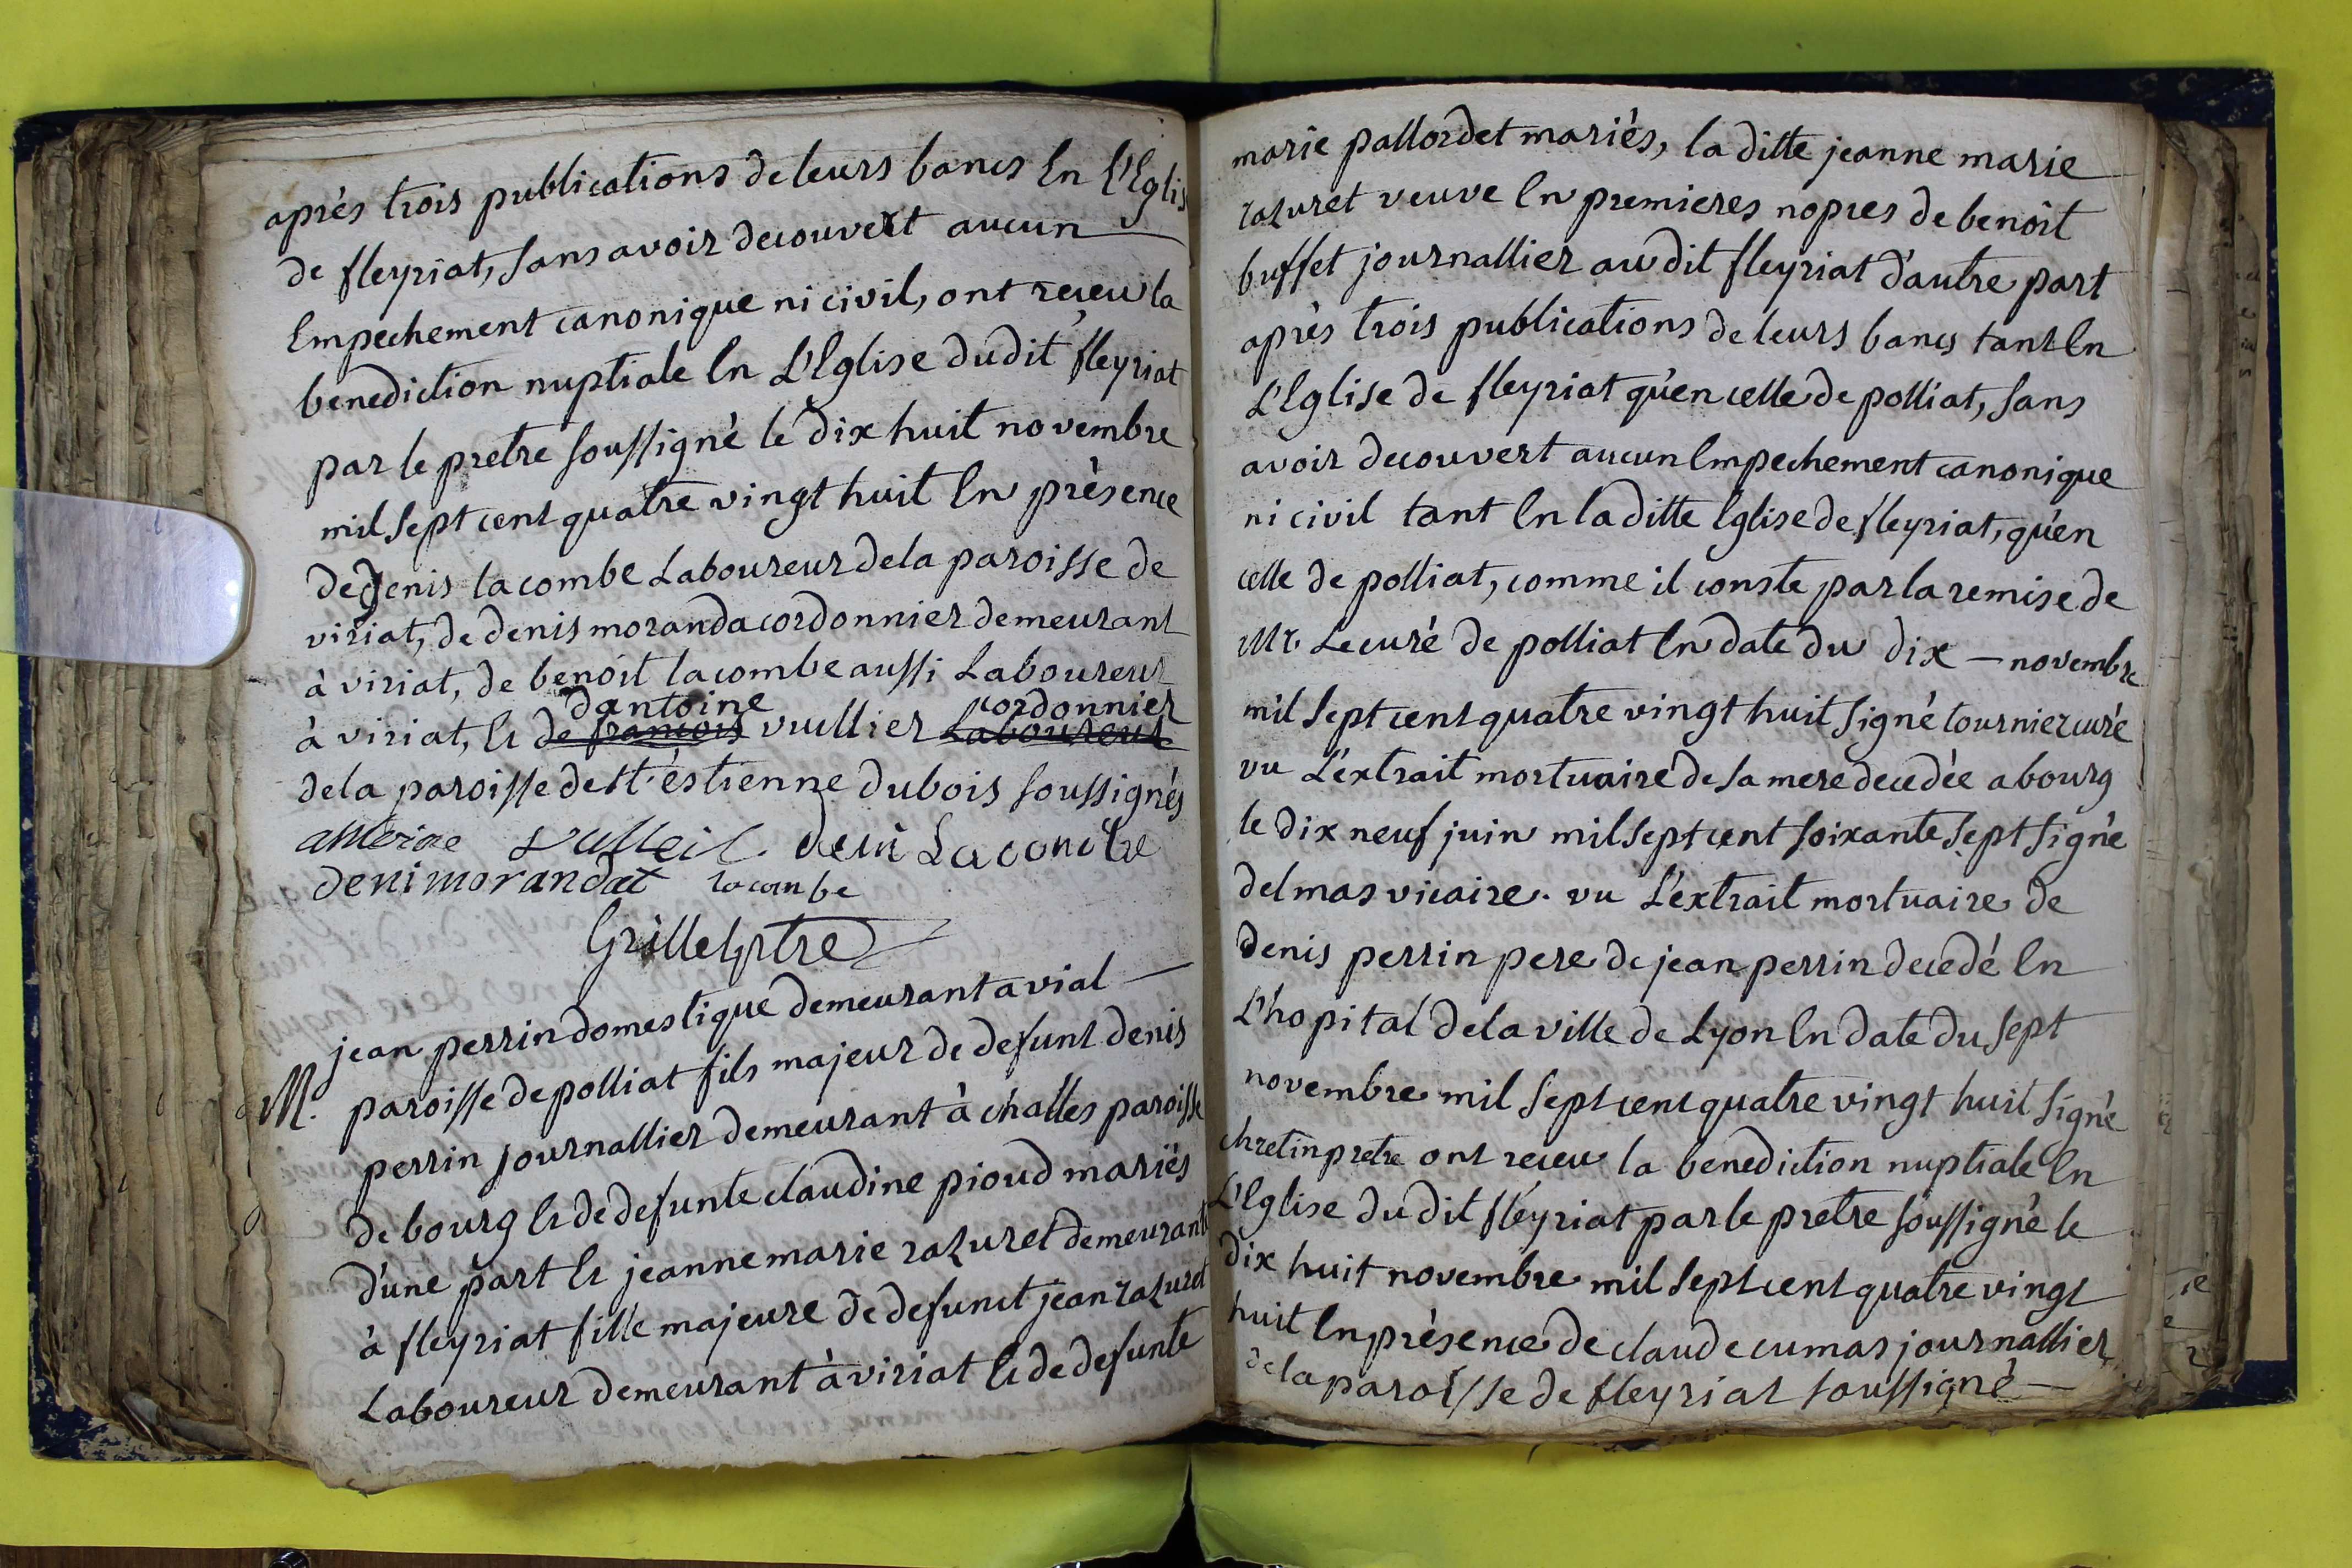 après trois publications de leurs bancs En l'Eglis
de fleyriat, sans avoir decouvert aucun
Empechement canonique ni civil, ont receu la
benediction nuptiale En L'Eglise dudit fleyriat
par le pretre soussigné le dix huit novembre
mil sept cent quatre vingt huit En présence
de denis lacombe Laboureur de la paroisse de
viriat, de denis moranda cordonnier demeurant
à viriat, de benoit lacombe aussi Laboureur
dantoine cordonnier
à viriat, Et de francois vuillier Laboureur
de la paroisse de st. éstienne dubois soussignés
deni Lacombe
deni morandat lacombe
Grillet ptre
jean perrin domestique demeurant a vial
M. paroisse de polliat fils majeur de defunt denis
perrin journallier demeurant à challes paroisse
de bourg Et de defunte claudine pioud mariés
d'une part Et jeanne marie razuret demeurant
à fleyriat fille majeure de defunct jean razuret
Laboureur demeurant à viriat Et de defunte
marie pallordet mariés, la ditte jeanne marie
razuret veuve En premieres nopces de benoît
buffet journallier audit fleyriat d'autre part
après trois publications de leurs bancs tant En
L'Eglise de fleyriat qu'en celle de polliat, sans
avoir decouvert aucun Empechement canonique
ni civil tant En la ditte Eglise de fleyriat, qu'en
celle de polliat, comme il conste par la remise de
Mr. Le curé de polliat En date du dix — novembre
mil sept cent quatre vingt huit signé tournier curé
vu L'extrait mortuaire de sa mere decedée a bourg
le dix neuf juin mil sept cent soixante sept signé
delmas vicaire. vu L'extrait mortuaire de
denis perrin pere de jean perrin decedé En
L'hopital de la ville de Lyon En date du sept
novembre mil sept cent quatre vingt huit signé
chretin pretre ont receu la benediction nuptiale En
L'Eglise du dit fleyriat par le pretre soussigné le
dix huit novembre mil sept cent quatre vingt
huit En présence de claude cumas journallier
de la paroisse de fleyriat soussigné —